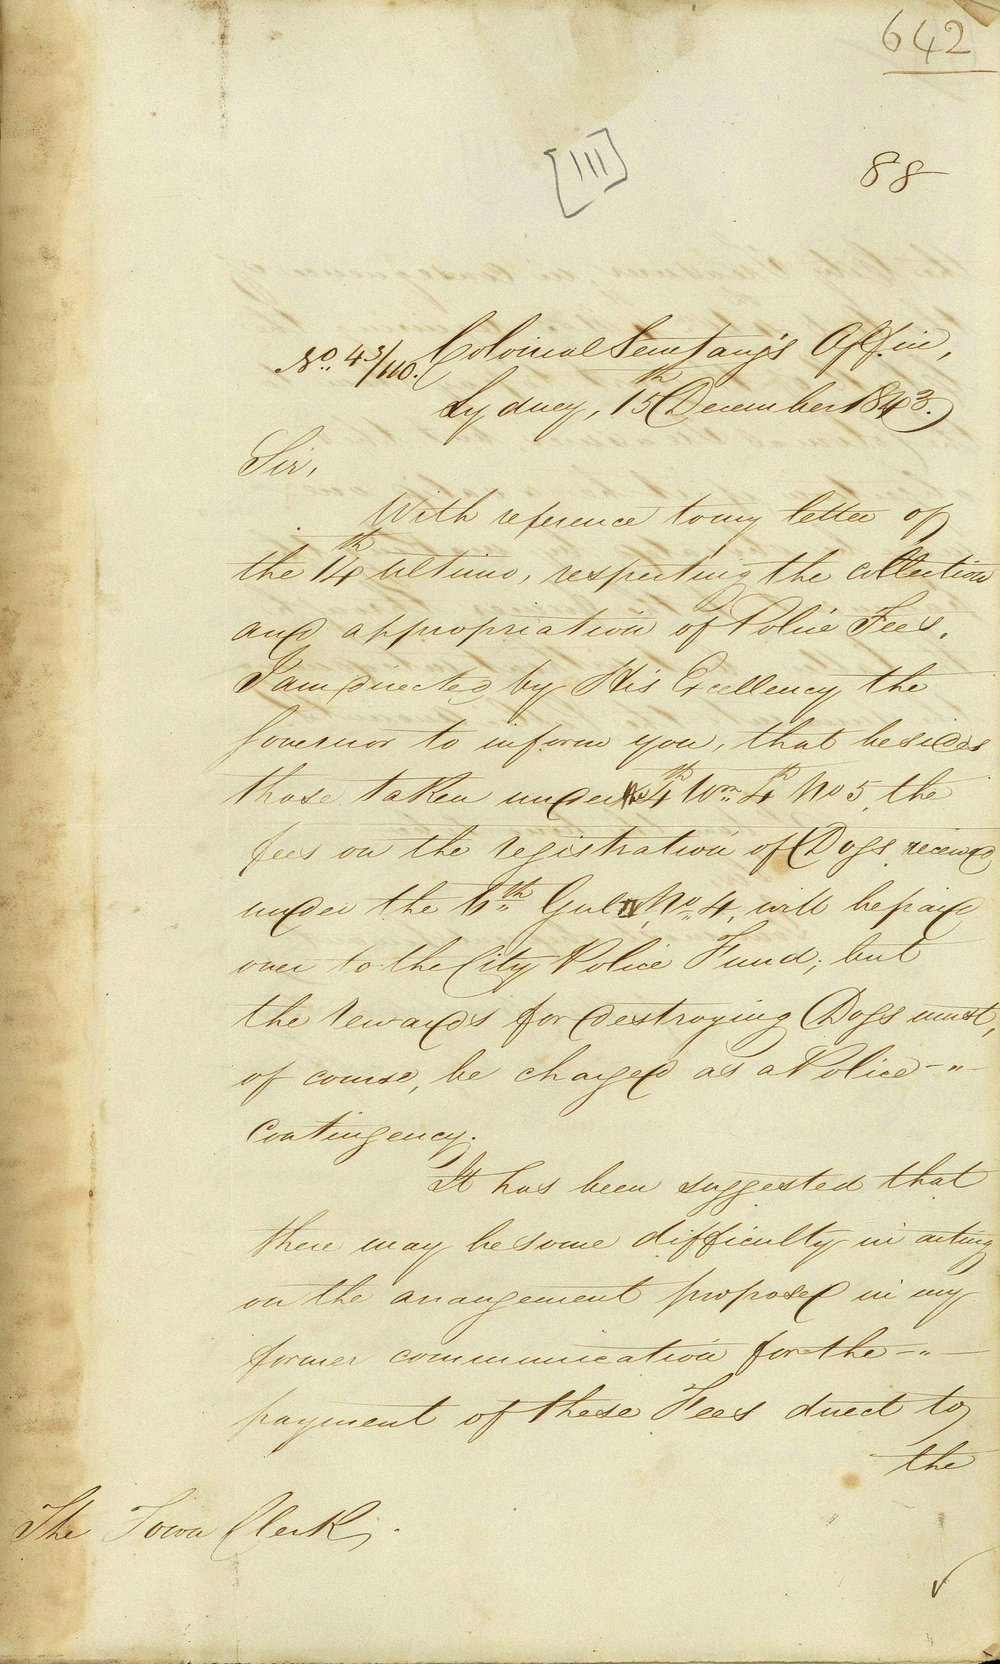 642
[111]
88
No. 43/110. Colonial Secretary's Office,
Sydney, 15th December 1843.
Sir,
With reference to my letter of
the 14th Ultimo, respecting the collection
and appropriation of Police Fees,
I am directed by His Excellency the
Governor to inform you, that besides
those taken under 4th Wm. 4th No 5, the
fees on the registration of Dogs received
under the 6th Gul. IV, No. 4, will be paid
over to the City Police Fund; but
the rewards for destroying Dogs must,
of course, be charged as a Police -"-
Contingency.
It has been suggested that
there may be some difficulty in acting
on the arrangement proposed in my
former communication for the -"-
payment of these Fees direct to
the
The Town Clerk.